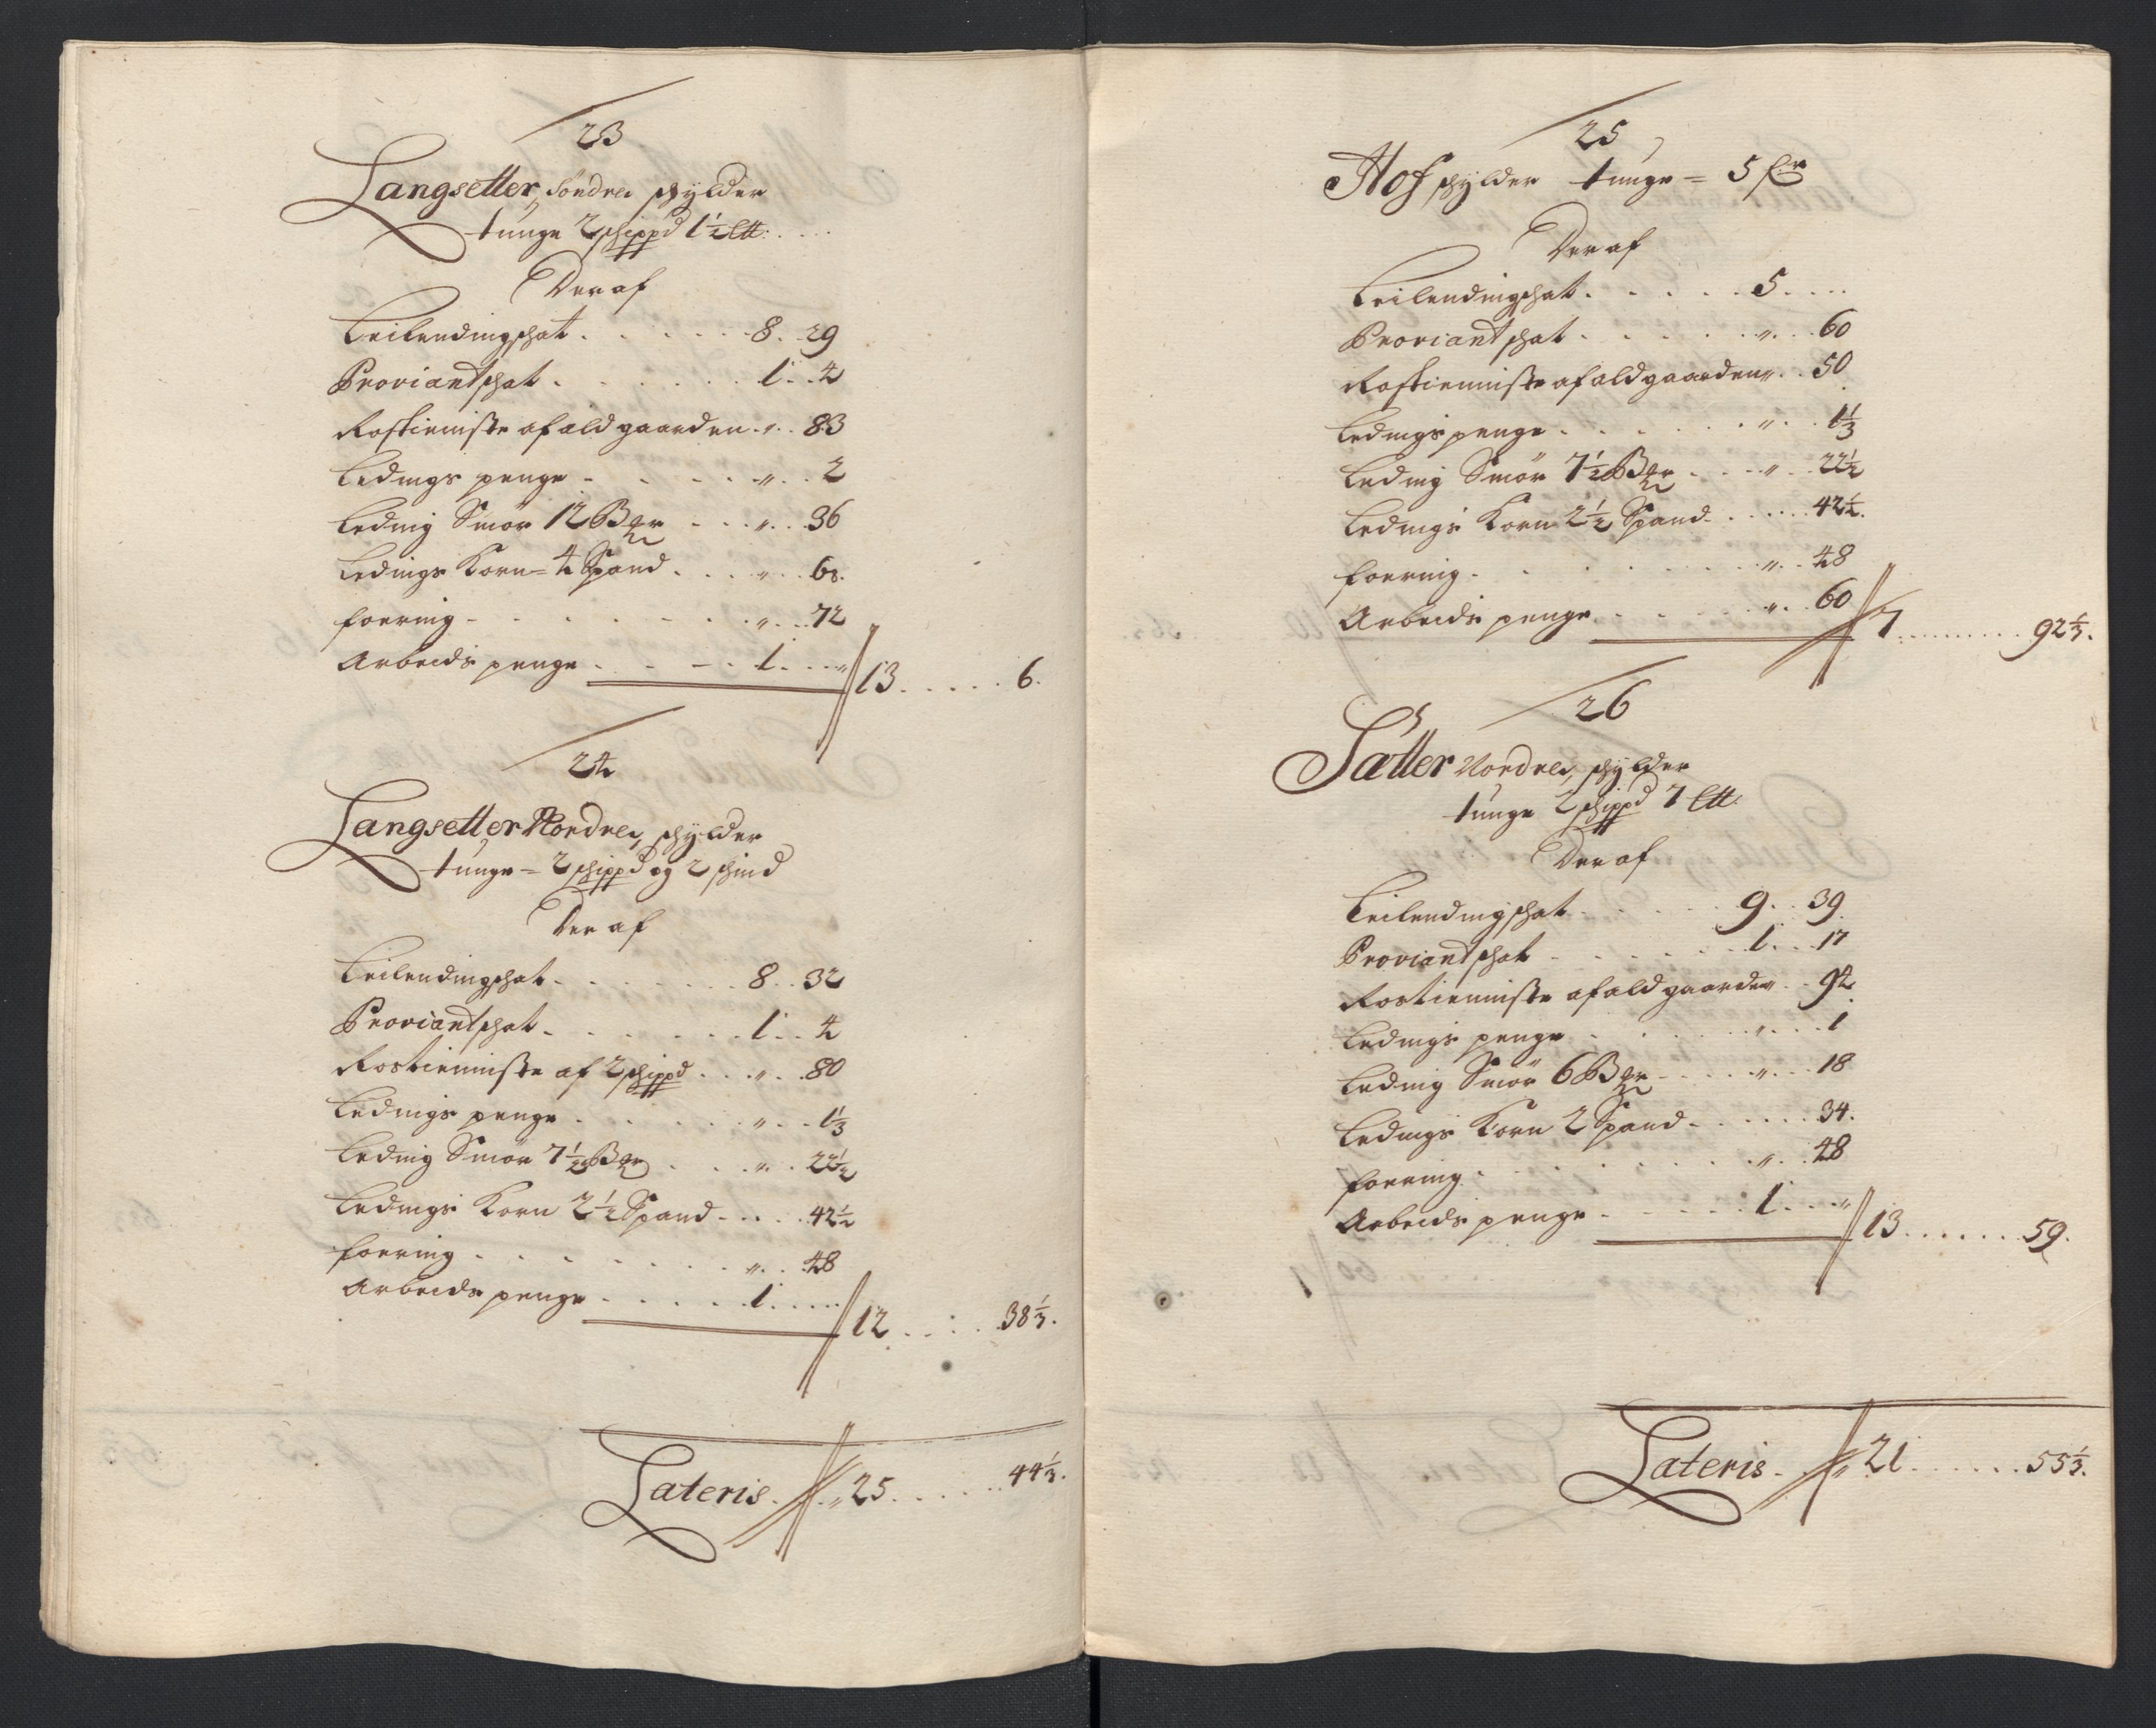 23
Langsetter, Söndre skylder
tunge 2 schippd 1½ Ltt:
Deraf
Leilendingschat . . . . . 8 . 29
Proviantschat . . . . . 1 . 4
Rostieniste af ald gaarden . „ . 83
Ledings penge . . . . „ . 2
Leding Smör 12 Bger . . „ . 36
Ledings Korn = 4 Spand . . „ . 68.
foering . . . . . „ . 72
Arbeids penge . . . . 1 . . „ 13 . . . . . 6.
24
Langsetter Nordre, skylder
tunge = 2 schippd og 2 skind
Deraf
Leilendingschat . . . . . 8 . 32
Proviantschat . . . . . 1 . 4
Rostienniste af 2 schippd . . „ . 80
Ledings penge . . . . „ . 1⅓
Leding Smör 7½ Bger . . „ . 22½
Ledings Korn 2½ Spand . . . 42½
foering . . . . . „ . 48
Arbeids penge . . . . . 1 . . . 12 . . . . 38⅓.
Lateris . „ 25 . . . . . 44⅓.
25
Hof skylder tunge = 5 sr
Deraf
Leilendingschat . . . . . 5 . . .
Proviantschat . . . . . „ . 60
Rostienniste af ald gaarden „ . 50
Ledings penge . . . . „ . 1⅓
Leding Smör 7½ Bger . . „ . 22½
Ledings Korn 2½ Spand . . . 42½.
foering . . . . . „ . 48
Arbeids penge . . . . „ . 60 7 . . . . . . 92⅓.
26
Sætter Nordre, skylder
tunge 2 schippd 7 Ltt:
Deraf
Leilendingschat . . . . . 9 . 39.
Proviantschat . . . . . 1 . 17
Rostienniste af ald gaarden . . 94
Ledings penge . . . . „ . 1
Leding Smör 6 Bger . . „ . 18
Ledings Korn 2 Spand . . . 34.
foering . . . . . „ . 48
Arbeids penge . . . . . 1 . . „ 13 . . . . . . 59.
Lateris . „ 21 . . . . . . 55⅓.